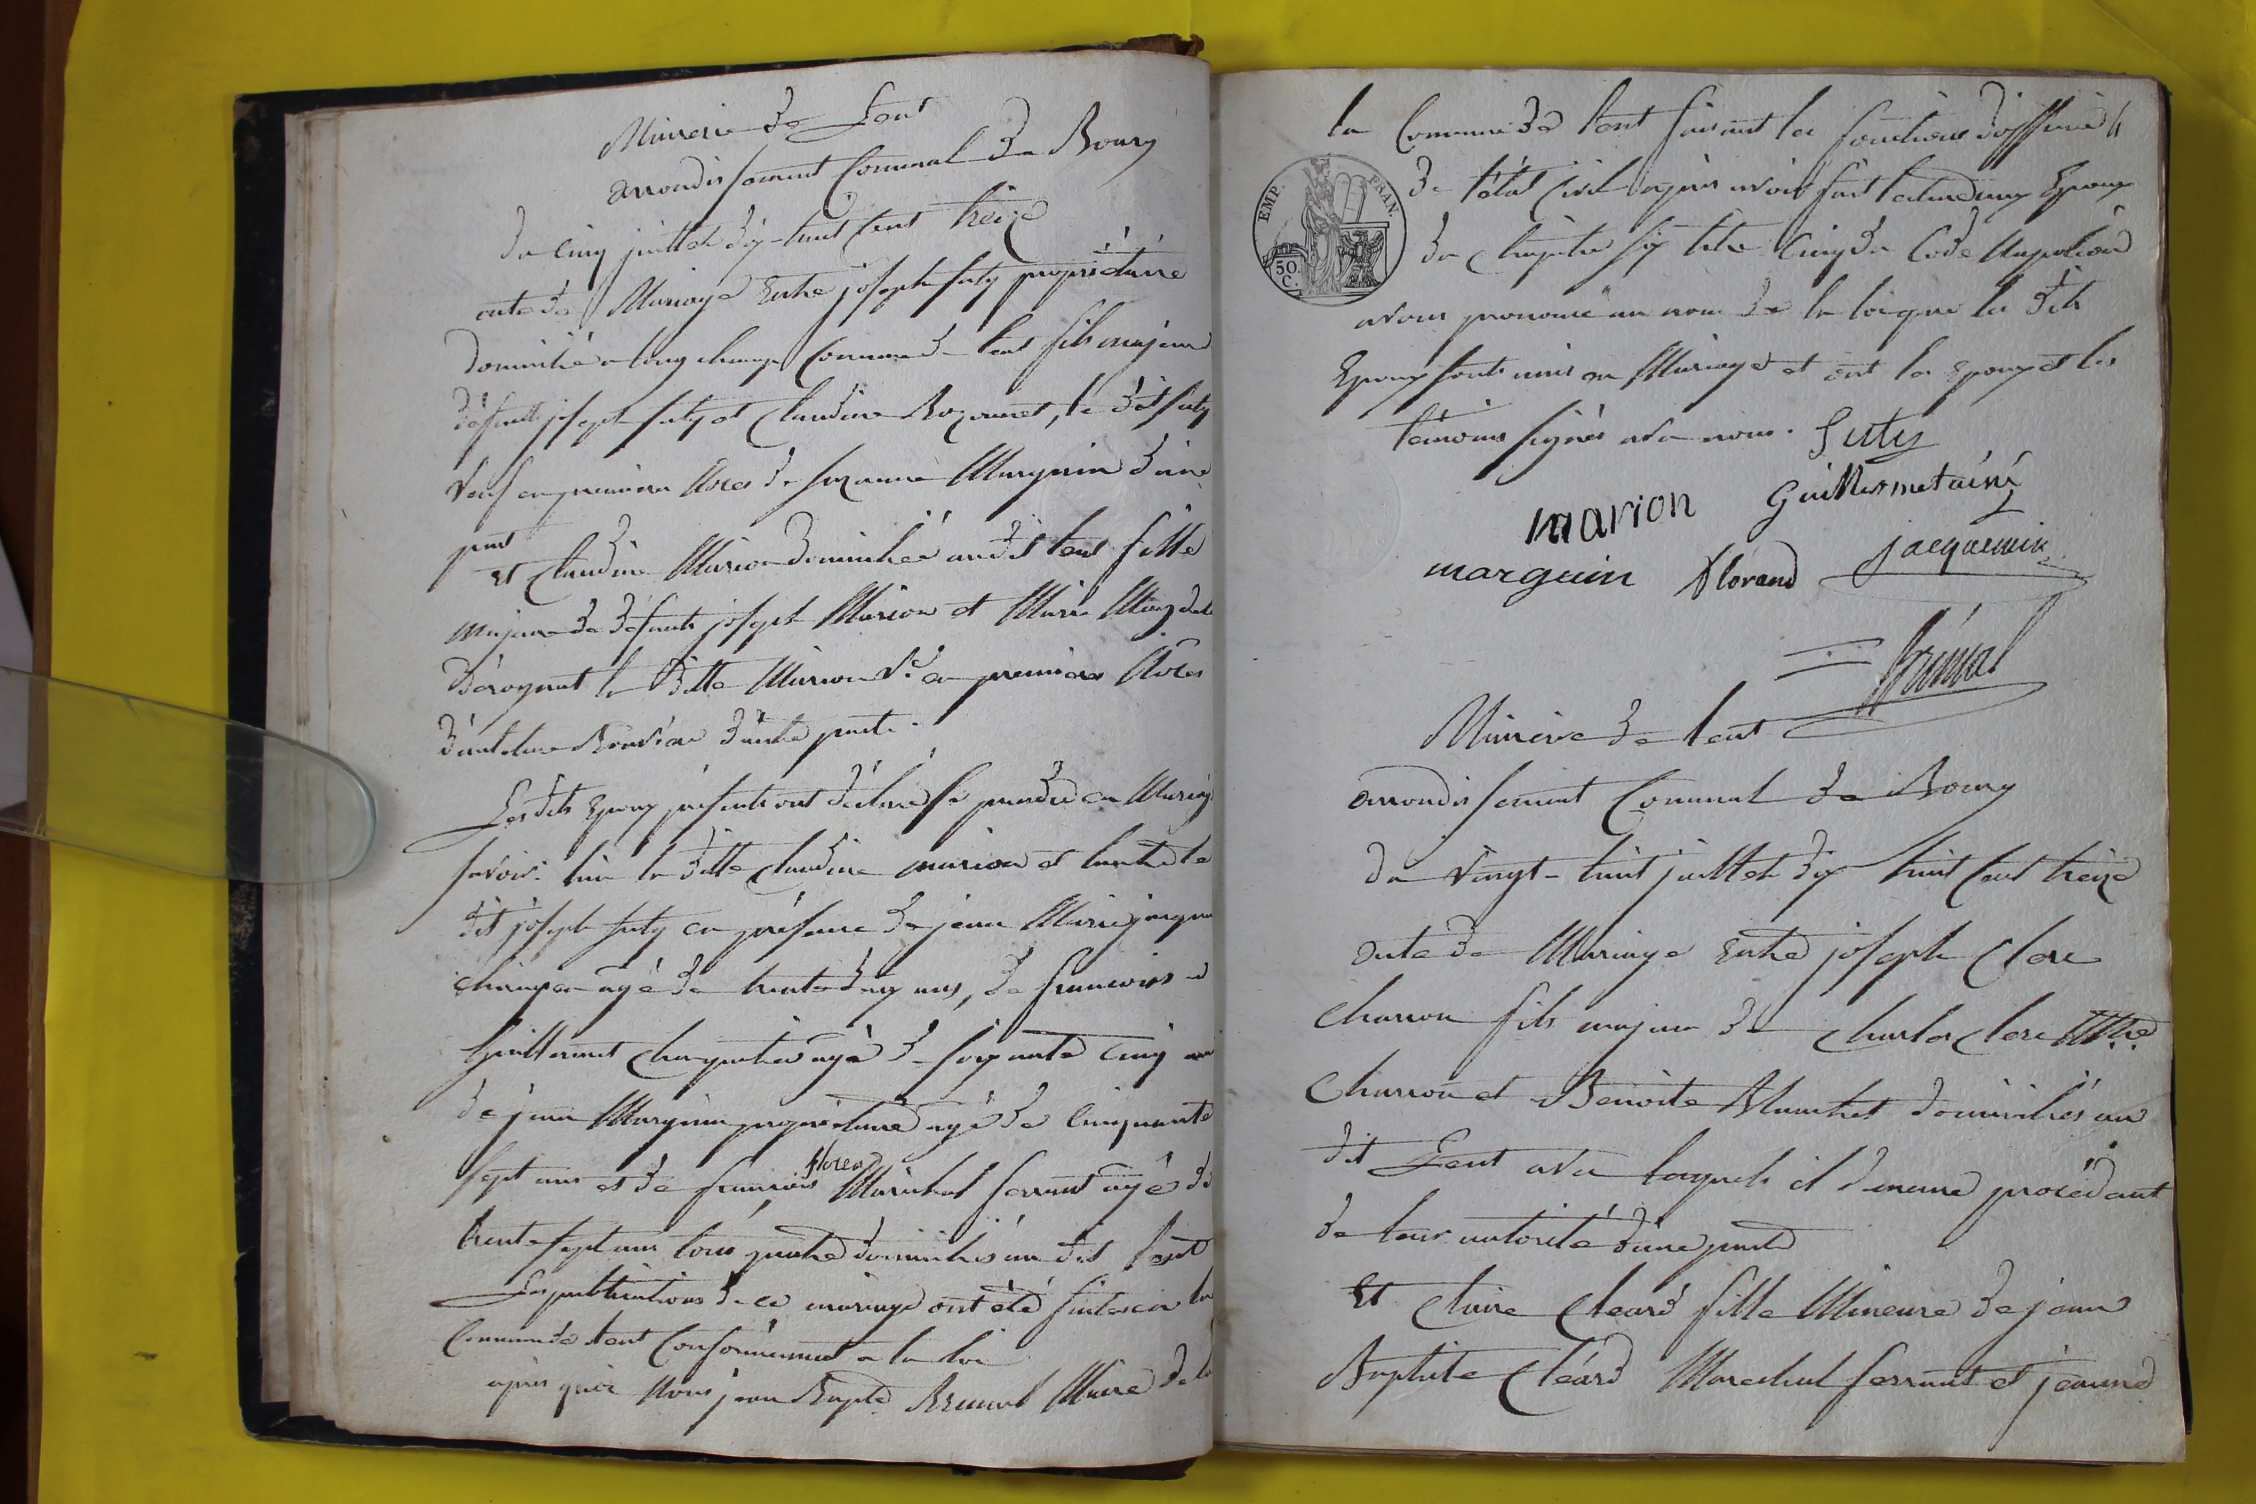 Mairerie de Lent
arrondissement Comunal de Bourg
du cinq juillet dix-huit cent treize
acte de Mariage Entre joseph suty propriétaire
domicilié a long champ Commune de Lent fils majeur
défunts joseph suty et Claudine le dit suty
veuf en premiere Noces de suzanne Marguin d'une
part
et Claudine Marion domiciliée au dit Lent fille
majeure de défunts joseph Marion et Marie
la ditte Marion Ve en premieres Noces
d'antoine d'autre part.
Les dits Epoux présents ont déclaré se prendre en Mariage
savoir. l'une la ditte Claudine marion et l'autre le
dit joseph suty en présence de jean Marie
agé de trente deux ans, de francois
Guillermet Charpentier agé de soixante cinq ans
de jean Marguin propriétaire agé de cinquante
sept ans et de francois florand Maréchal ferrant agé de
trente sept ans tous quatre domiciliés au dit Lent
Les publications de ce mariage ont été faites en la
Commune de Lent Conformément a la loi
apres quoi Nous jean Bapte Brunal Maire de la
la Commune de Lent faisant les fonctions d'officier
EMP. FRAN.
50. C.
de l'état Civil apres avoir fait lecture aux Epoux
du Chapitre six titre Cinq du Code Napoléon
avons prononcé au nom de la loi que les dits
Epoux sont unis en Mariage et ont les Epoux et les
témoins signés avec nous. Suty
marion Guillermet ainé
marguin florand jacquemin
Brunal
Mairerie de Lent
arrondissement Comunal de Bourg
du vingt-huit juillet dix huit cent treize
acte de Mariage Entre joseph Clerc
charron fils majeur de Charles Clerc
Charron et Benoite Blanchet domiciliés au
dit Lent avec lesquels il demeure procédant
de leur autorité d'une part
Et Claire Cleard fille Mineure de jean
Baptiste Cléard Marechal ferrant et jeanne